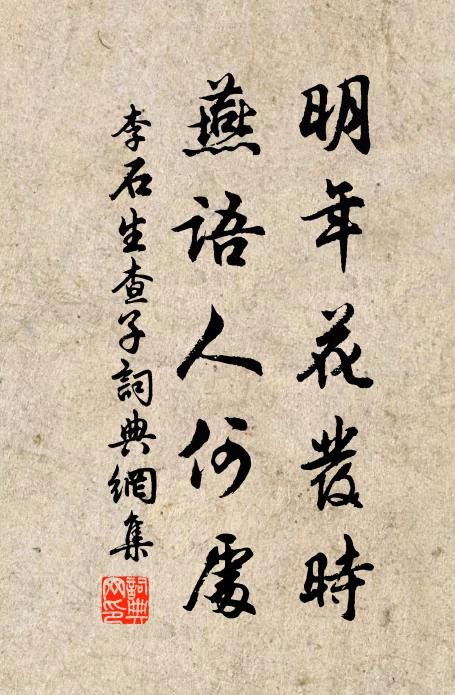 明年花發時
燕語人何處
李石生查子詞典網集
詞典網印